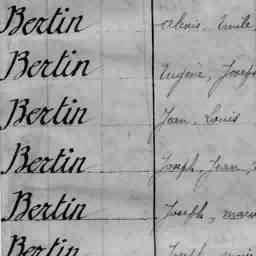 Bertin Alexis, Emile,
Bertin Eugène, Joseph
Bertin Jean, Louis
Bertin Joseph, Jean,
Bertin Joseph, marie
Bertin Joseph